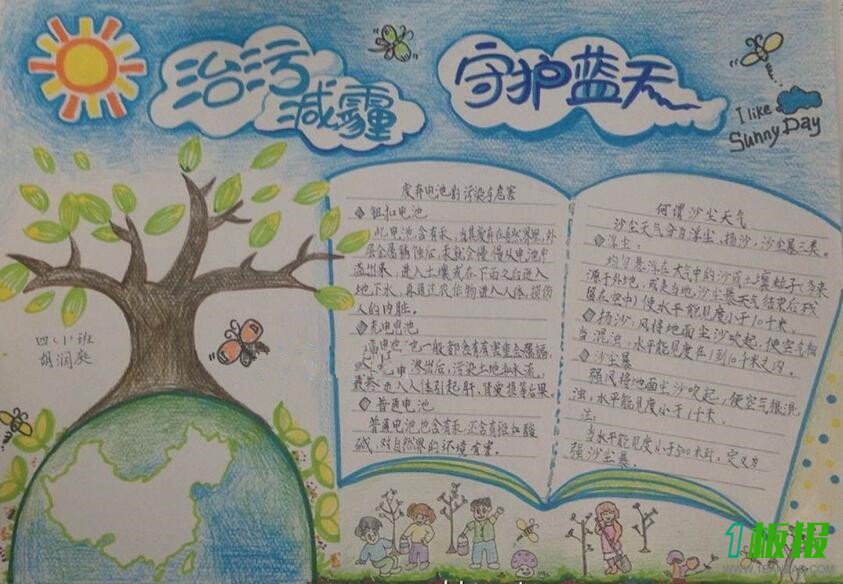 治污
减霾
守护蓝天
I like
Sunny Day
四(1)班
胡润庭
废弃电池的污染与危害
钮扣电池
此电池含有汞,当其废弃在自然界里,外
层金属锈蚀后,汞就会慢慢从电池中
溢出来,进入土壤或在下雨之后进入
地下水,再通过农作物进入人体,损伤
人的内脏。
充电电池
也一般都会有有害重金属镉,
溢出后,污染土地和水流,
进入人体引起肝、肾
普通电池
普通电池也含有汞,还含有锰和酸
碱,对自然界的环境有害。
何谓沙尘天气
沙尘天气分为浮尘,扬沙,沙尘暴三类。
浮尘:
均匀悬浮在大气中的沙或土壤粒子(多来
源于外地,或是当地沙尘暴天气结束后残
留在空中)使水平能见度小于10千米。
扬沙:风将地面尘沙吹起,使空气相
当混浊,水平能见度在1到10千米之内。
沙尘暴
强风将地面尘沙吹起,使空气很混
浊,水平能见度小于1千米。
注:
当水平能见度小于500米时,定义为
强沙尘暴。
1板报
WWW.1BANBAO.COM